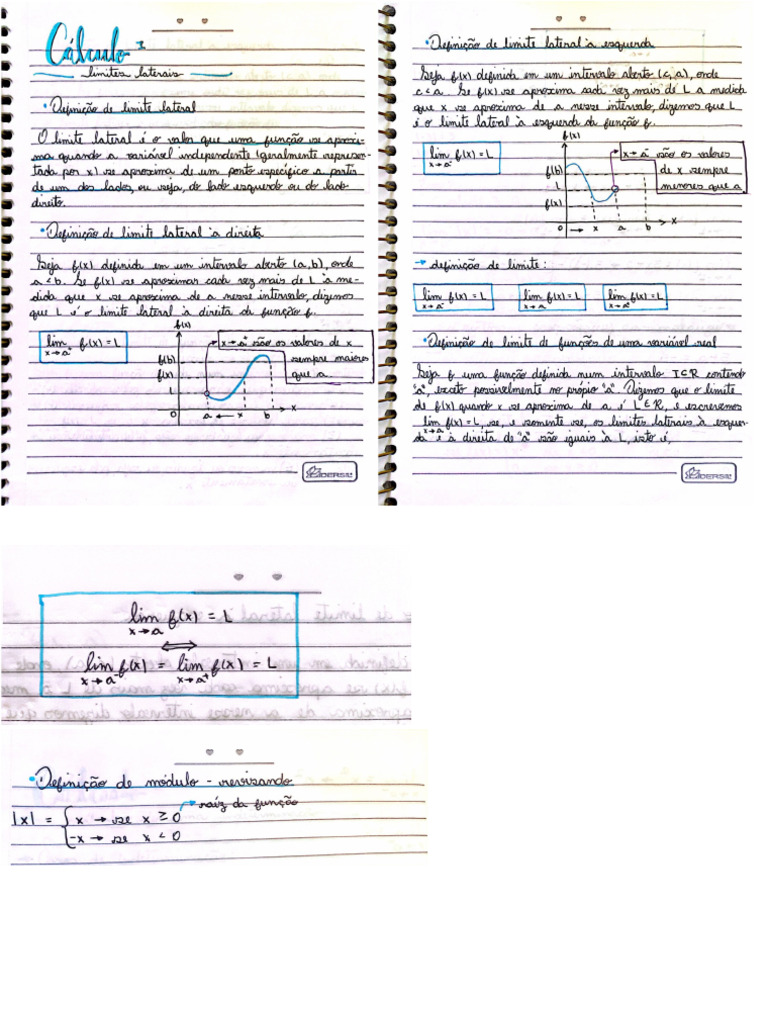 Cálculo I
limites laterais
• Definição de limite lateral
O limite lateral é o valor que uma função se aproxi-
ma quando a variável independente (geralmente represen-
tada por x) se aproxima de um ponto específico a partir
de um dos lados, ou seja, do lado esquerdo ou do lado
direito.
• Definição de limite lateral à direita
Seja f(x) definida em um intervalo aberto (a, b), onde
a < b. Se f(x) se aproximar cada vez mais de L à me-
dida que x se aproxima de a nesse intervalo, dizemos
que L é o limite lateral à direita da função f.
lim f(x) = L
x→a⁺
f(x)
x→a⁺ são os valores de x
sempre maiores
que a
f(b)
f(x)
L
0 a ← x b x
KAJOERSIL
• Definição de limite lateral à esquerda
Seja f(x) definida em um intervalo aberto (c, a), onde
c < a. Se f(x) se aproxima cada vez mais de L a medida
que x se aproxima de a nesse intervalo, dizemos que L
é o limite lateral à esquerda da função f.
lim f(x) = L
x→a⁻
f(x)
x→a⁻ são os valores
de x sempre
menores que a
f(b)
L
f(x)
0 → x a b x
→ definição de limite:
lim f(x) = L
x→a⁻
lim f(x) = L
x→a
lim f(x) = L
x→a⁺
• Definição de limite de funções de uma variável real
Seja f uma função definida num intervalo I∈R contendo
"a", exceto possivelmente no própio "a". Dizemos que o limite
de f(x) quando x se aproxima de a é L∈R, e escrevemos
lim f(x) = L, se, e somente se, os limites laterais à esquer-
x→a
da e à direita de "a" são iguais à L, isto é,
lim f(x) = L
x→a
⟺
lim f(x) = lim f(x) = L
x→a⁻ x→a⁺
• Definição de módulo - revisando
raíz da função
|x| = { x → se x ≥ 0
-x → se x < 0